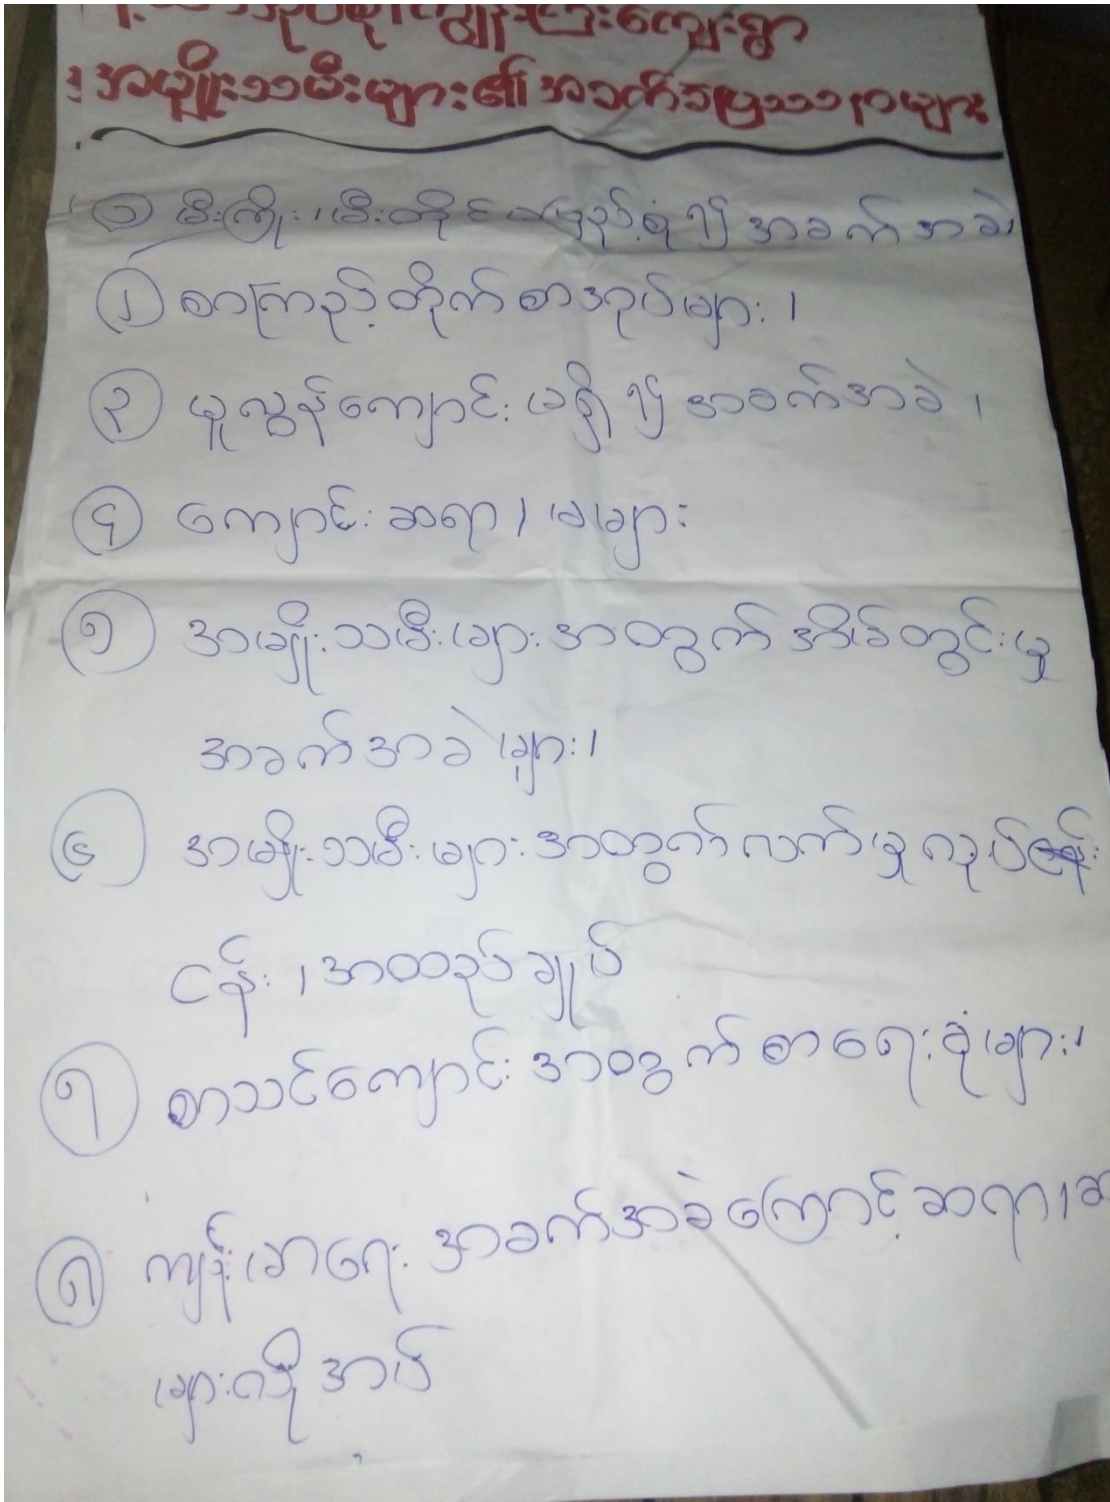 ကျွန်းကြီးကျေးရွာ
အမျိုးသမီးများ၏အခက်ခဲပြဿနာများ
၁ မီးကြိုး၊ မီးတိုင် မပြည့်စုံ၍ အခက်အခဲ၊
၂ စာကြည့်တိုက်စာအုပ်များ ၊
၃ မူလွန်ကျောင်း မရှိ၍ အခက်အခဲ ၊
၄ ကျောင်းဆရာ ၊ မများ
၅ အမျိုးသမီးများအတွက် အိမ်တွင်းမှု
အခက်အခဲများ၊
၆ အမျိုးသမီးများအတွက် လက်မှုလုပ်
ငန်း ၊ အထည်ချုပ်
၇ စာသင်ကျောင်းအတွက် စာရေးခုံများ၊
၈ ကျန်းမာရေး အခက်အခဲကြောင့် ဆရာ၊ ဆ
များလိုအပ်